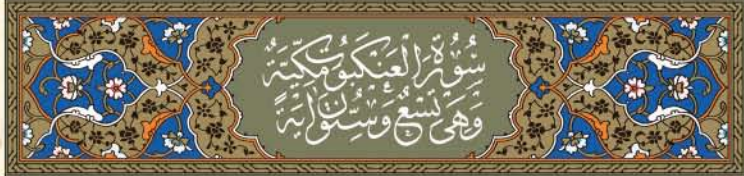 سُورَةُ الْعَنْكَبُوتِ مَكِّيَّةٌ
وَهِيَ تِسْعٌ وَسِتُّونَ آيَةً